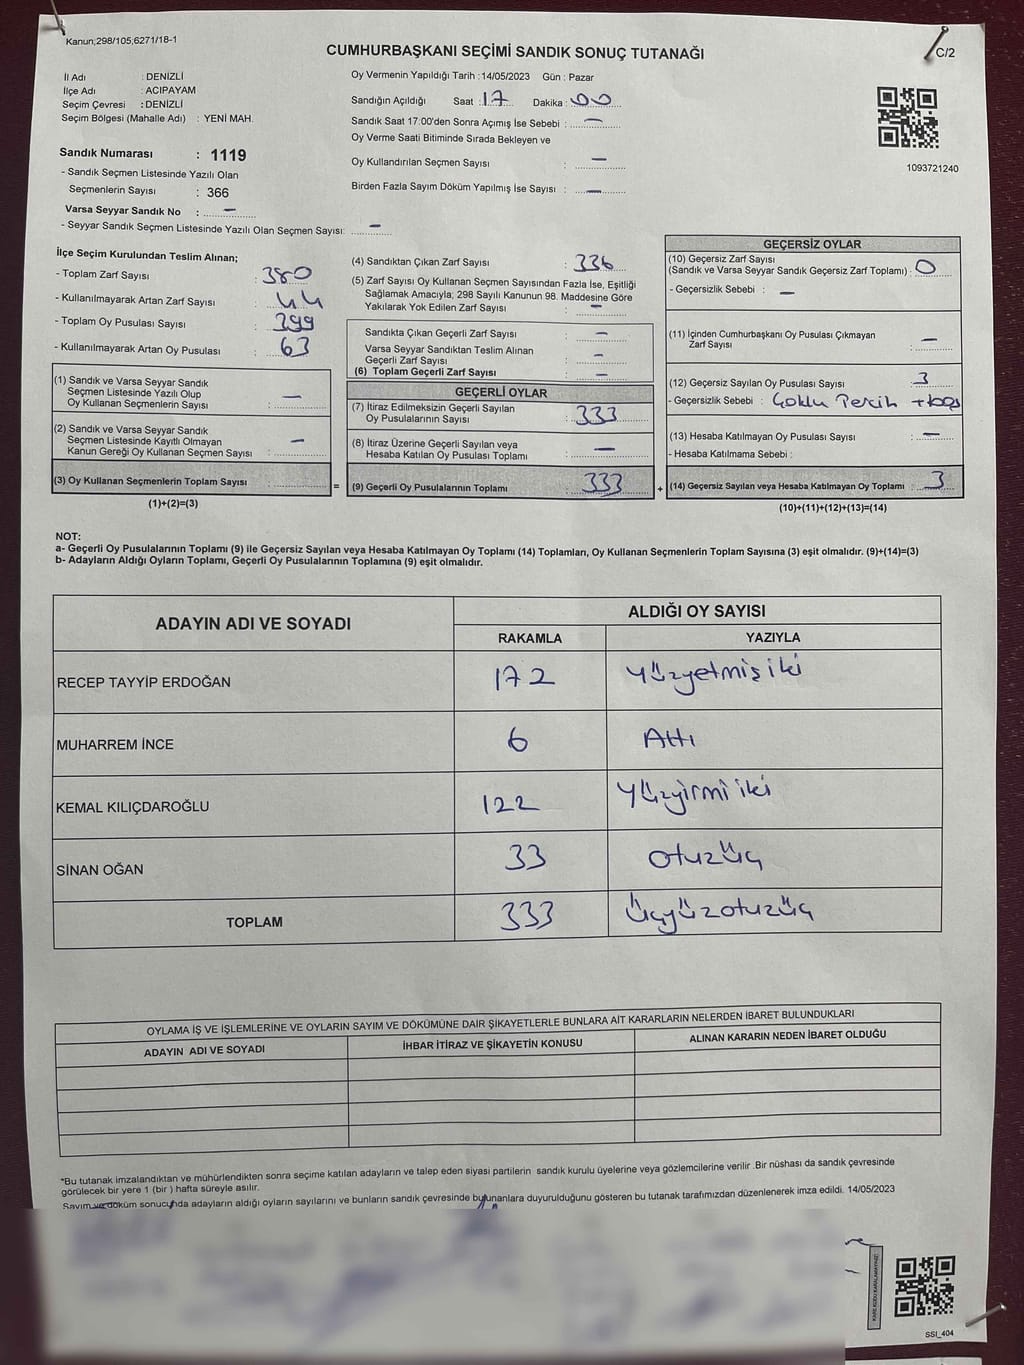 Kanun;298/105,6271/18-1
C/2
CUMHURBAŞKANI SEÇİMİ SANDIK SONUÇ TUTANAĞI
İl Adı : DENİZLİ
İlçe Adı : ACIPAYAM
Seçim Çevresi : DENİZLİ
Seçim Bölgesi (Mahalle Adı) : YENİ MAH.
Oy Vermenin Yapıldığı Tarih : 14/05/2023 Gün : Pazar
Sandığın Açıldığı Saat : 17 Dakika : 00
Sandık Saat 17:00'den Sonra Açımış İse Sebebi : —
Oy Verme Saati Bitiminde Sırada Bekleyen ve
Oy Kullandırılan Seçmen Sayısı : —
Birden Fazla Sayım Döküm Yapılmış İse Sayısı : —
1093721240
Sandık Numarası : 1119
- Sandık Seçmen Listesinde Yazılı Olan
Seçmenlerin Sayısı : 366
Varsa Seyyar Sandık No : —
- Seyyar Sandık Seçmen Listesinde Yazılı Olan Seçmen Sayısı: —
İlçe Seçim Kurulundan Teslim Alınan;
- Toplam Zarf Sayısı : 380
- Kullanılmayarak Artan Zarf Sayısı : 44
- Toplam Oy Pusulası Sayısı : 399
- Kullanılmayarak Artan Oy Pusulası : 63
(1) Sandık ve Varsa Seyyar Sandık
Seçmen Listesinde Yazılı Olup
Oy Kullanan Seçmenlerin Sayısı : —
(2) Sandık ve Varsa Seyyar Sandık
Seçmen Listesinde Kayıtlı Olmayan
Kanun Gereği Oy Kullanan Seçmen Sayısı : —
(3) Oy Kullanan Seçmenlerin Toplam Sayısı :
(1)+(2)=(3)
=
(4) Sandıktan Çıkan Zarf Sayısı : 336
(5) Zarf Sayısı Oy Kullanan Seçmen Sayısından Fazla İse, Eşitliği
Sağlamak Amacıyla; 298 Sayılı Kanunun 98. Maddesine Göre
Yakılarak Yok Edilen Zarf Sayısı : —
Sandıkta Çıkan Geçerli Zarf Sayısı : —
Varsa Seyyar Sandıktan Teslim Alınan
Geçerli Zarf Sayısı : —
(6) Toplam Geçerli Zarf Sayısı : —
GEÇERLİ OYLAR
(7) İtiraz Edilmeksizin Geçerli Sayılan
Oy Pusulalarının Sayısı : 333
(8) İtiraz Üzerine Geçerli Sayılan veya
Hesaba Katılan Oy Pusulası Toplamı : —
(9) Geçerli Oy Pusulalarının Toplamı : 333
+
GEÇERSİZ OYLAR
(10) Geçersiz Zarf Sayısı
(Sandık ve Varsa Seyyar Sandık Geçersiz Zarf Toplamı) : 0
- Geçersizlik Sebebi : —
(11) İçinden Cumhurbaşkanı Oy Pusulası Çıkmayan
Zarf Sayısı : —
(12) Geçersiz Sayılan Oy Pusulası Sayısı : 3
- Geçersizlik Sebebi : Çoklu Tercih + boş
(13) Hesaba Katılmayan Oy Pusulası Sayısı : —
- Hesaba Katılmama Sebebi :
(14) Geçersiz Sayılan veya Hesaba Katılmayan Oy Toplamı : 3
(10)+(11)+(12)+(13)=(14)
NOT:
a- Geçerli Oy Pusulalarının Toplamı (9) ile Geçersiz Sayılan veya Hesaba Katılmayan Oy Toplamı (14) Toplamları, Oy Kullanan Seçmenlerin Toplam Sayısına (3) eşit olmalıdır. (9)+(14)=(3)
b- Adayların Aldığı Oyların Toplamı, Geçerli Oy Pusulalarının Toplamına (9) eşit olmalıdır.
ADAYIN ADI VE SOYADI
ALDIĞI OY SAYISI
RAKAMLA YAZIYLA
RECEP TAYYİP ERDOĞAN 172 Yüzyetmişiki
MUHARREM İNCE 6 Altı
KEMAL KILIÇDAROĞLU 122 Yüzyirmiiki
SİNAN OĞAN 33 Otuzüç
TOPLAM 333 Üçyüzotuzüç
OYLAMA İŞ VE İŞLEMLERİNE VE OYLARIN SAYIM VE DÖKÜMÜNE DAİR ŞİKAYETLERLE BUNLARA AİT KARARLARIN NELERDEN İBARET BULUNDUKLARI
ADAYIN ADI VE SOYADI İHBAR İTİRAZ VE ŞİKAYETİN KONUSU ALINAN KARARIN NEDEN İBARET OLDUĞU
*Bu tutanak imzalandıktan ve mühürlendikten sonra seçime katılan adayların ve talep eden siyasi partilerin sandık kurulu üyelerine veya gözlemcilerine verilir .Bir nüshası da sandık çevresinde
görülecek bir yere 1 (bir ) hafta süreyle asılır.
Sayım ve döküm sonucunda adayların aldığı oyların sayılarını ve bunların sandık çevresinde bulunanlara duyurulduğunu gösteren bu tutanak tarafımızdan düzenlenerek imza edildi. 14/05/2023
SSI_404